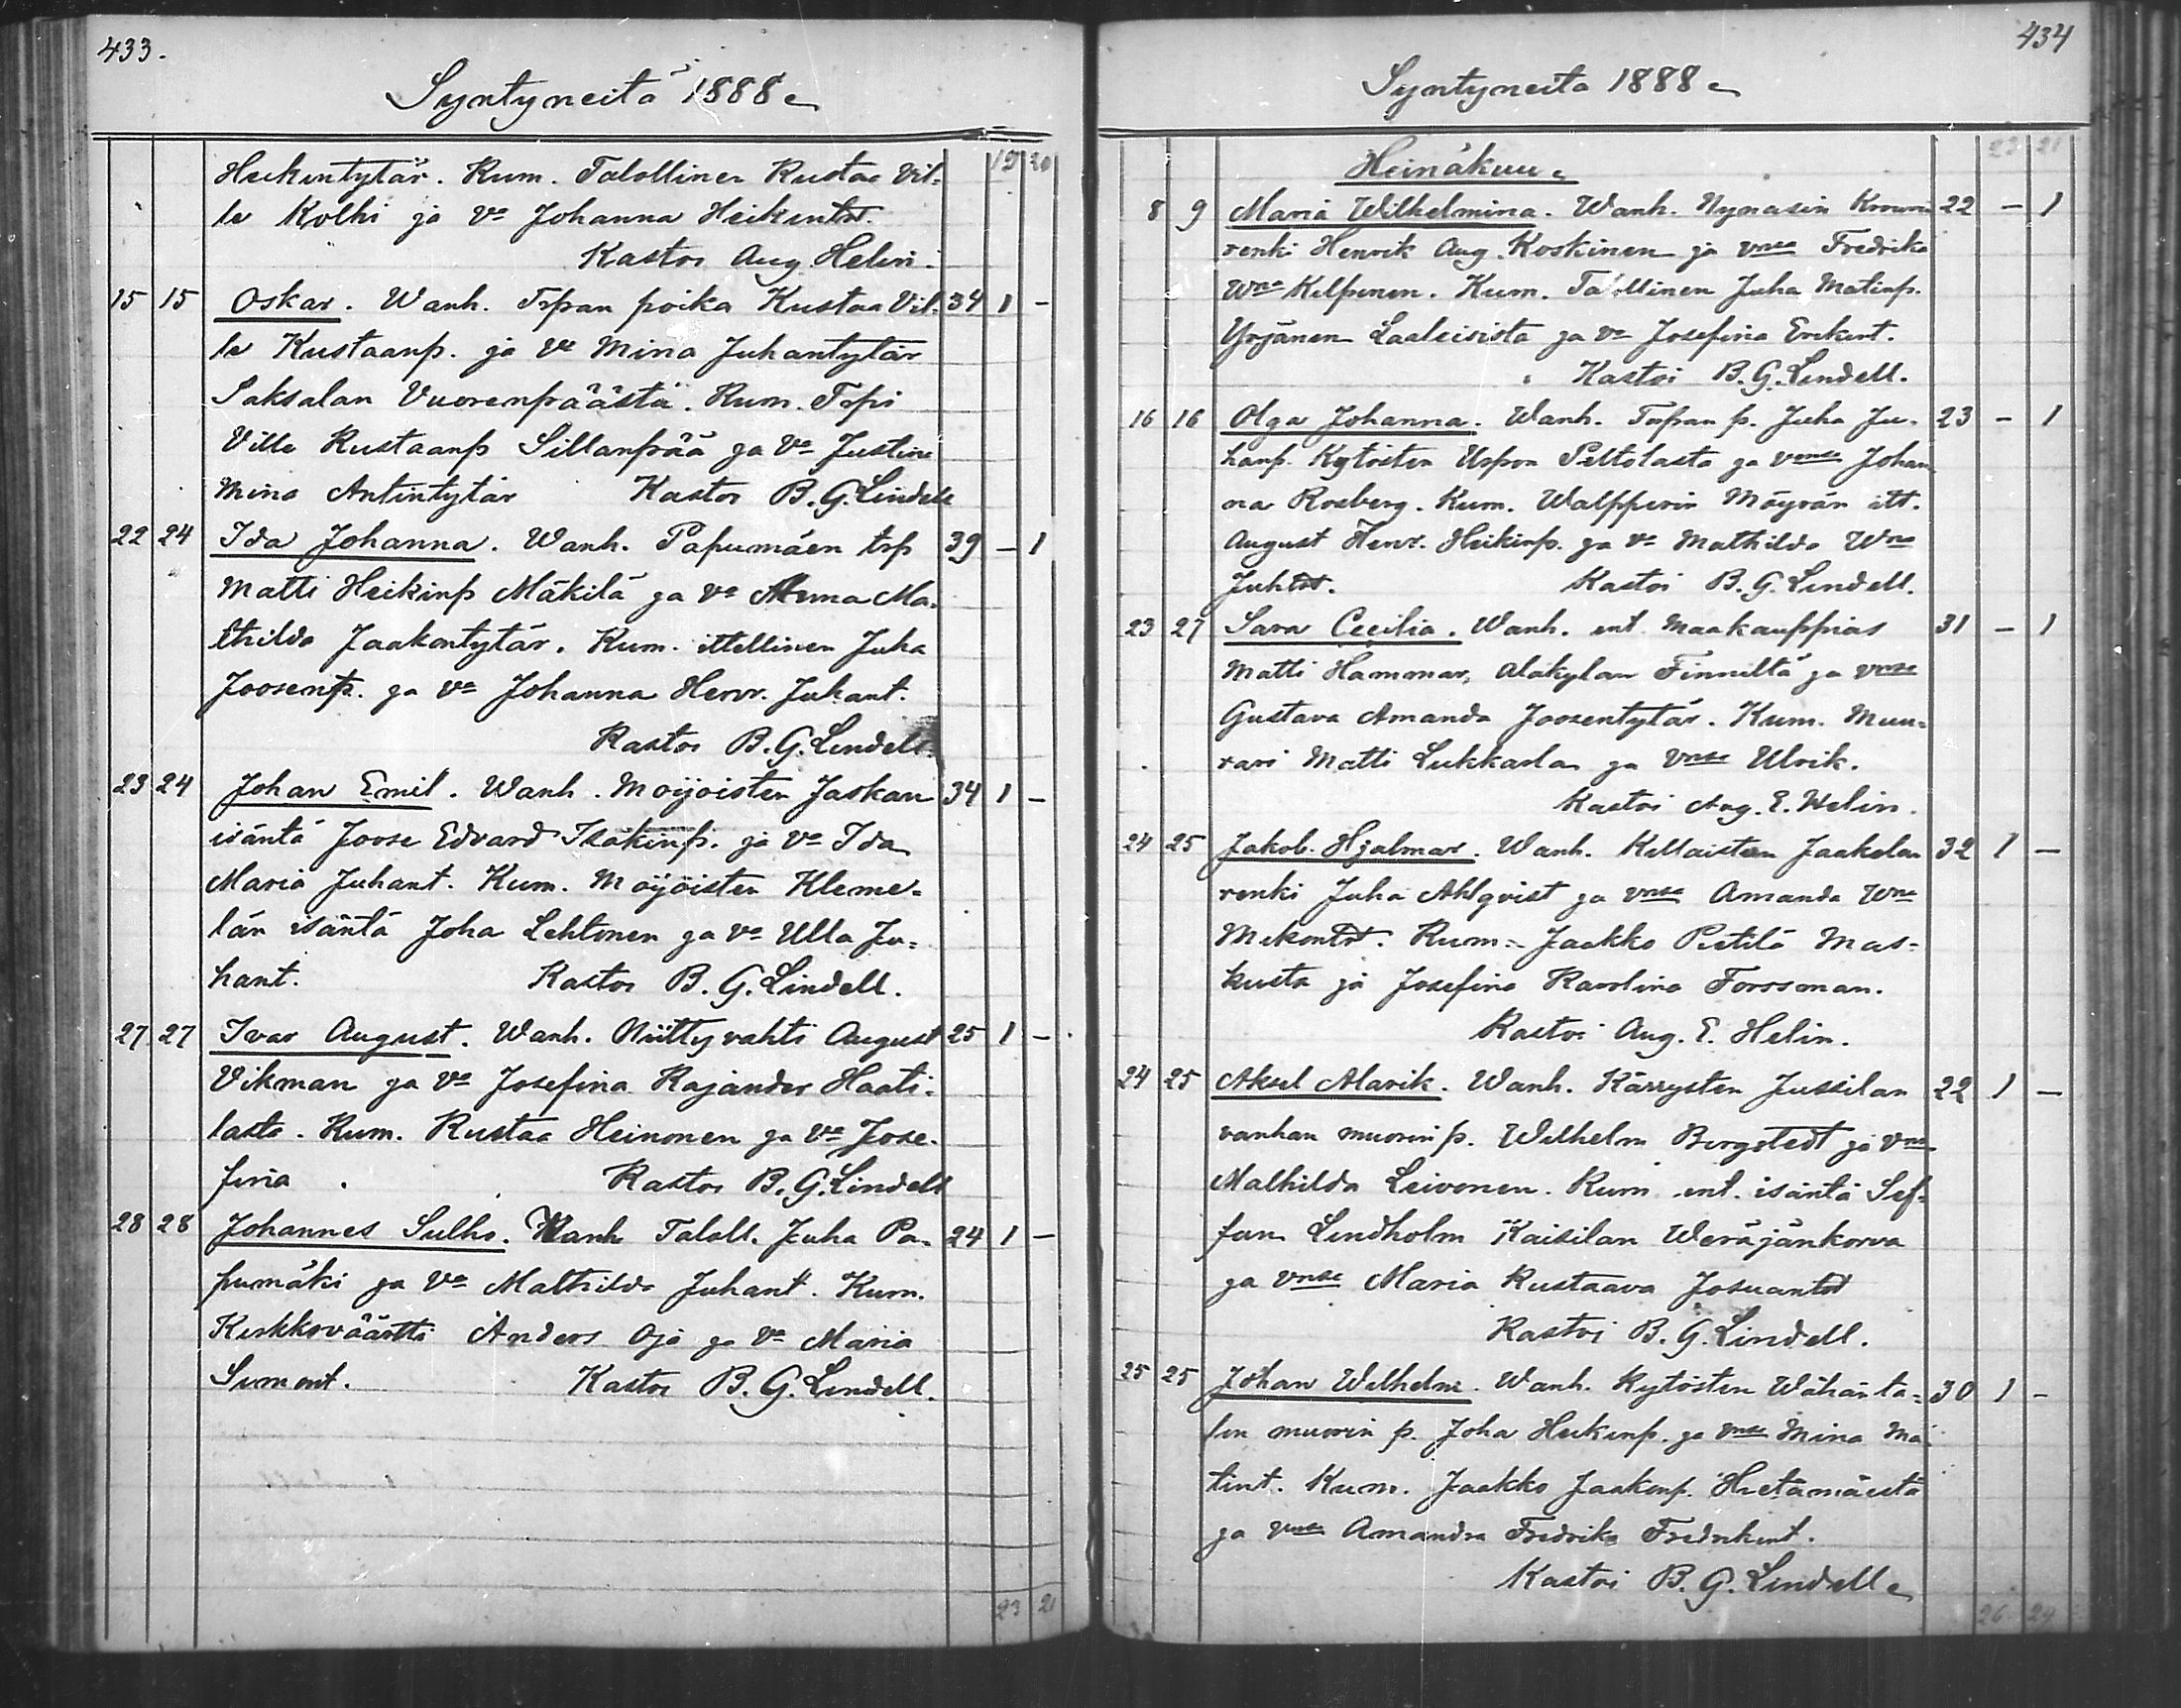 433.
Syntyneitä 1888
19 20
Heikintytär. Kum. Talollinen Kustaa Vil-
le Kolhi ja Vo Johanna Heikintrt.
Kastoi Aug. Helin.
15 15 Oskar. Wanh. Trpran poika Kustaa Vil- 34 1 -
le Kustaanp. ja Vo Mina Juhantytär
Saksalan Vuorenpäästä. Kum. Trpi
Ville Kustaanp Sillanpää ja Vo Justina
Mina Antintytär Kastoi B. G. Lindell
22 24 Ida Johanna. Wanh. Papumäen trp 39 - 1
Matti Heikinp Mäkilä ja Vo Anna Ma-
thilda Jaakontytär. Kum. ittellinen Juha
Joosenp. ja Vo Johanna Henr. Juhant.
Kastoi B. G. Lindell.
23 24 Johan Emil. Wanh. Moijoisten Jaskan 34 1 -
isäntä Joose Edvard Isakinp. ja Vo Ida
Maria Juhant. Kum. Moijoisten Kleme-
län isäntä Joha Lehtonen ja Vo Ulla Ju-
hant. Kastoi B. G. Lindell.
27 27 Ivar August. Wanh. Niittyvahti August 25 1 -
Vikman ja Vo Josefina Rajander Haati-
lasta. Kum. Kustaa Heinonen ja Vo Jose-
fina. Kastoi B. G. Lindell
28 28 Johannes Sulho. Wanh Taloll. Juha Pa- 24 1 -
pumäki ja Vo Mathilda Juhant. Kum.
Kirkkoväärtti Anders Oja ja Vo Maria
Simont. Kastoi B. G. Lindell.
23 21
434
Syntyneitä 1888
23 21
Heinäkuu
8 9 Maria Wilhelmina. Wanh. Nynäsin Kruun 22 - 1
renki Henrik Aug. Koskinen ja vmsa Fredrika
Wna Kilpinen. Kum. Talollinen Juha Matinp.
Yrjänen Laaleisista ja vo Josefina Erikint.
Kastoi B. G. Lindell.
16 16 Olga Johanna. Wanh. Trpran p. Juha Ju- 23 - 1
hanp. Kytösten Uspon Peltolasta ja vmsa Johan
na Rosberg. Kum. Walpperin Mäyrän itt.
August Henr. Heikinp. ja vo Mathilda Wna
Juhtrt. Kastoi B. G. Lindell.
23 27 Sara Cecilia. Wanh. ent. Maakauppias 31 - 1
Matti Hammar, Alakylan Finniltä ja vmsa
Gustava Amanda Joosentytär. Kum. Muu-
rari Matti Lukkarla ja vmsa Ulrik.
Kastoi Aug. E. Helin.
24 25 Jakob Hjalmar. Wanh. Killaisten Jaakolan 32 1 -
renki Juha Ahlqvist ja vmsa Amanda Wna
Mikontrt. Kum. Jaakko Pietilä Mas-
kusta ja Josefina Karolina Forssman.
Kastoi Aug. E. Helin.
24 25 Aksel Alarik. Wanh. Kärrysten Jussilan 22 1 -
vanhan muorin p. Wilhelm Bergstedt ja vma
Mathilda Leivonen. Kum. ent. isäntä Sef-
fan Lindholm Kaisilan Weräjänkorva
ja vmsa Maria Kustaava Josuantrt
Kastoi B. G. Lindell.
25 25 Johan Wilhelm. Wanh. Kytösten Wähänta- 30 1 -
lon muorin p. Joha Heikinp. ja vmsa Mina Ma
tint. Kum. Jaakko Jaakonp. Hietamäestä
ja vmsa Amandra Fredrika Fredrikint.
Kastoi B. G. Lindell
26 24